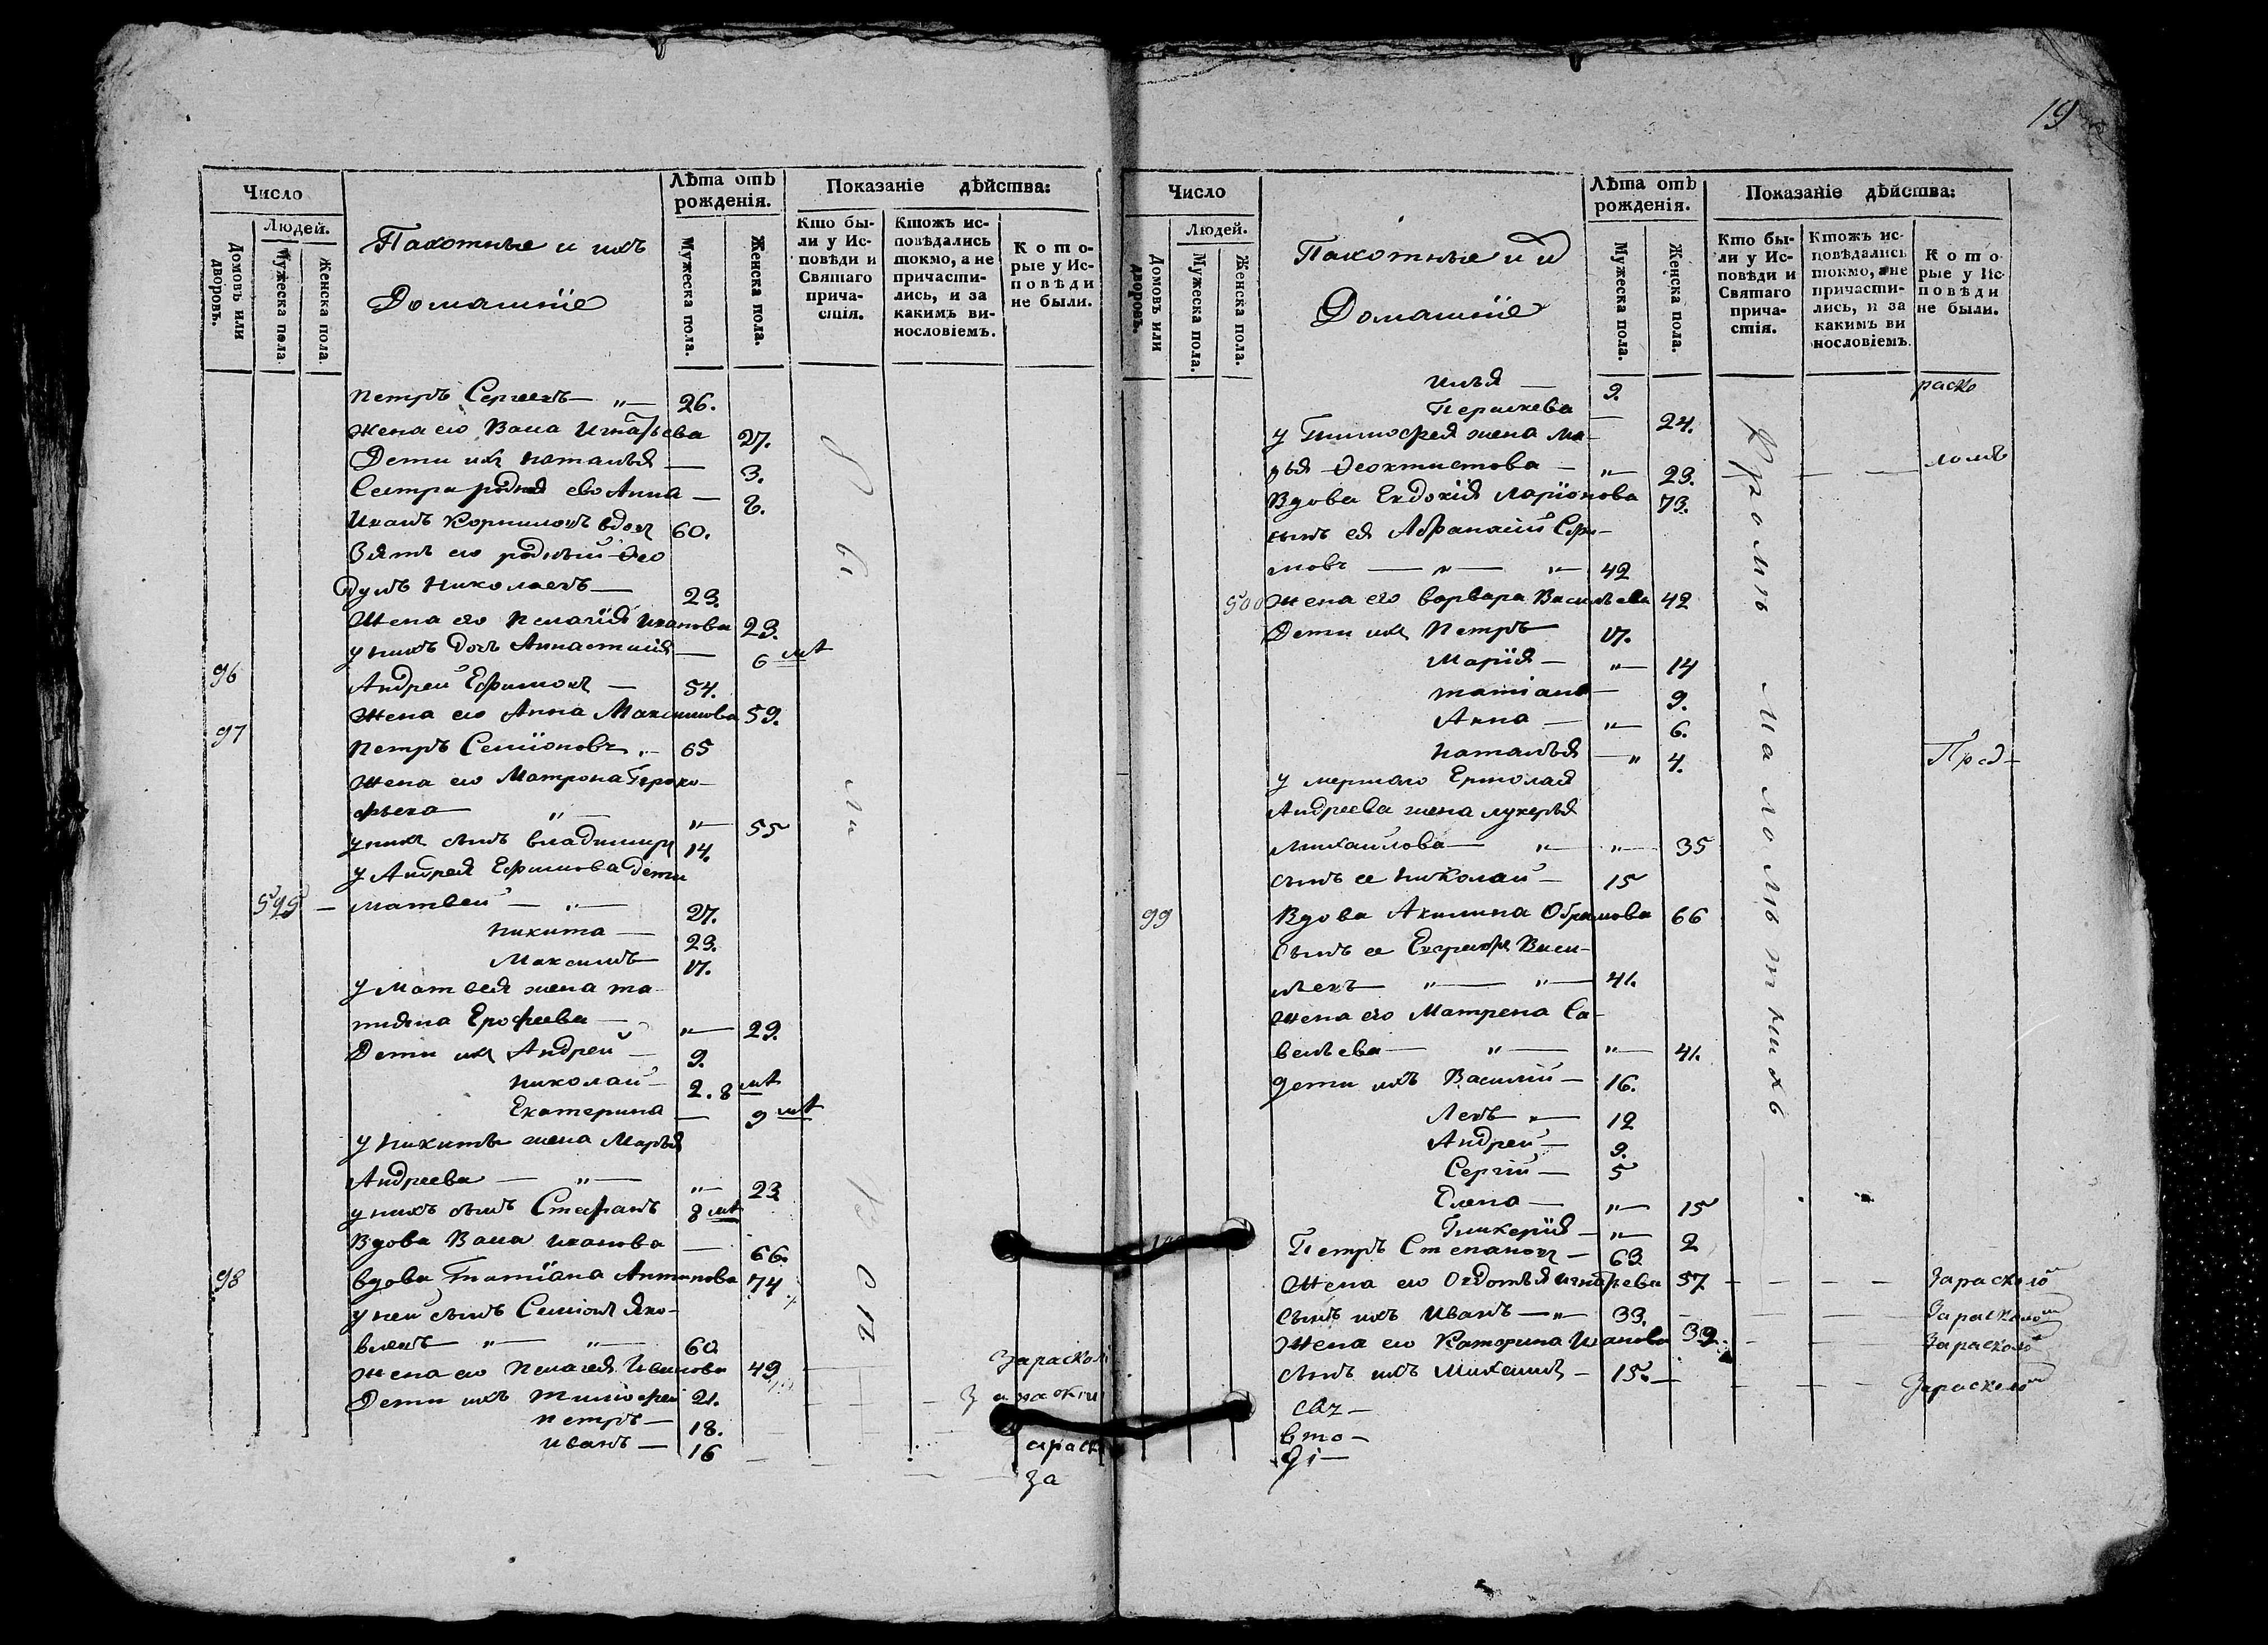 Число
Людей.
Домовъ или дворовъ.
Мужеска пола.
Женска пола.
Пахотные и ихъ
Домашнïе
Лѣта отъ рожденія.
Мужеска пола.
Женска пола.
Показаніе дѣйства:
Кто бы-
ли у Ис-
повѣди и
Святаго
прича-
стія.
Ктожъ ис-
повѣдались
токмо, а не
причасти-
лись, и за
какимъ ви-
нословіемъ.
Кото-
рые у Ис-
повѣди
не были.
Петръ Сергеевъ — „ — 26.
Жена его Васа Игнатьева 27.
Дети ихъ Наталья — 3.
Сестра родная ево Анна —
Иванъ Корниловъ вдов 60.
Зять его родный Фео
дулъ Николаевъ — 23.
Жена его Пелагия Иванова 23.
у нихъ дочь Аннастасия — 6 мѣ
96 Андрей Ефимовъ — 54.
Жена его Анна Максимова 59.
97 Петръ Семïоновъ „ — 65
Жена его Матрона Проко-
фьева — „ — „ — 55
у нихъ сынъ Владимиръ 14.
у Андрея Ефимова дети
595 — Матвей — „ — 27.
Никита — 23.
Максимъ — 17.
у Матвея жена та-
тияна Ерофеева — „ — 29.
Дети ихъ Андрей — 9.
Николай — 2. 8 мѣ
Екатерина — 9 мѣ
у Никиты жена Марья
Андреева — „ — „ — 23
у нихъ сынъ Стефанъ 8 мѣ
Вдова Васа Иванова — 66.
98 вдова Татïана Антипова 74
у ней сынъ Семïонъ Яко-
влевъ — „ — „ — 60
жена его Пелагея Иванова 49 — За раскол
Дети ихъ Тимофей 21. — — —
Петръ — 18. — — —
Иванъ — 16 — — — За
Вси
19
Число
Людей.
Домовъ или дворовъ.
Мужеска пола.
Женска пола.
Пахотные и и
Домашнïе
Лѣта отъ рожденія.
Мужеска пола.
Женска пола.
Показаніе дѣйства:
Кто бы-
ли у Ис-
повѣди и
Святаго
прича-
стія.
Ктожъ ис-
повѣдались
токмо, а не
причасти-
лись, и за
какимъ ви
нословіемъ.
Кото-
рые у Ис-
повѣди
не были.
Илья — 9. раско
Перасковa — 24.
у Тимофея жена Ма-
рья Феоктистова — „ — 23. — — ломъ
Вдова Евдокïя Ларïонова 73.
сынъ ея Афанасий Ефи-
мовъ — „ — „ — 42
500 Жена его Варвара Васильева 42
Дети ихъ Петръ 17.
Марïя — „ — 14
татïана — 9.
Анна — „ — 6.
Наталья — „ 4.
у мершаго Ермолая
Андреева жена лукерья
Михайлова — „ — „ — 35
сынъ ее Николай — 15
99 Вдова Акилина Обрамова 66
Сынъ ее Евграфъ Васи-
льевъ — „ — „ — 41.
Жена его Матрена Са-
вельева — „ — „ — 41.
дети ихъ Василий — 16.
Левъ „ — 12
Андрей — 9.
Сергïй — 5
Елена — „ — 15
Гликерïя — „ — 2
Петръ Степановъ — 63
Жена его Овдотья Игнатьева 57 — — — — За расколо
Сынъ ихъ Иванъ — „ — 33. — — — За расколо
Жена его Катерина Иванова 32 — — — За расколо
сынъ ихъ Михаилъ — 15. — — — — За расколо
свч —
вто —
ді —
Кроми Малолѣтнихъ